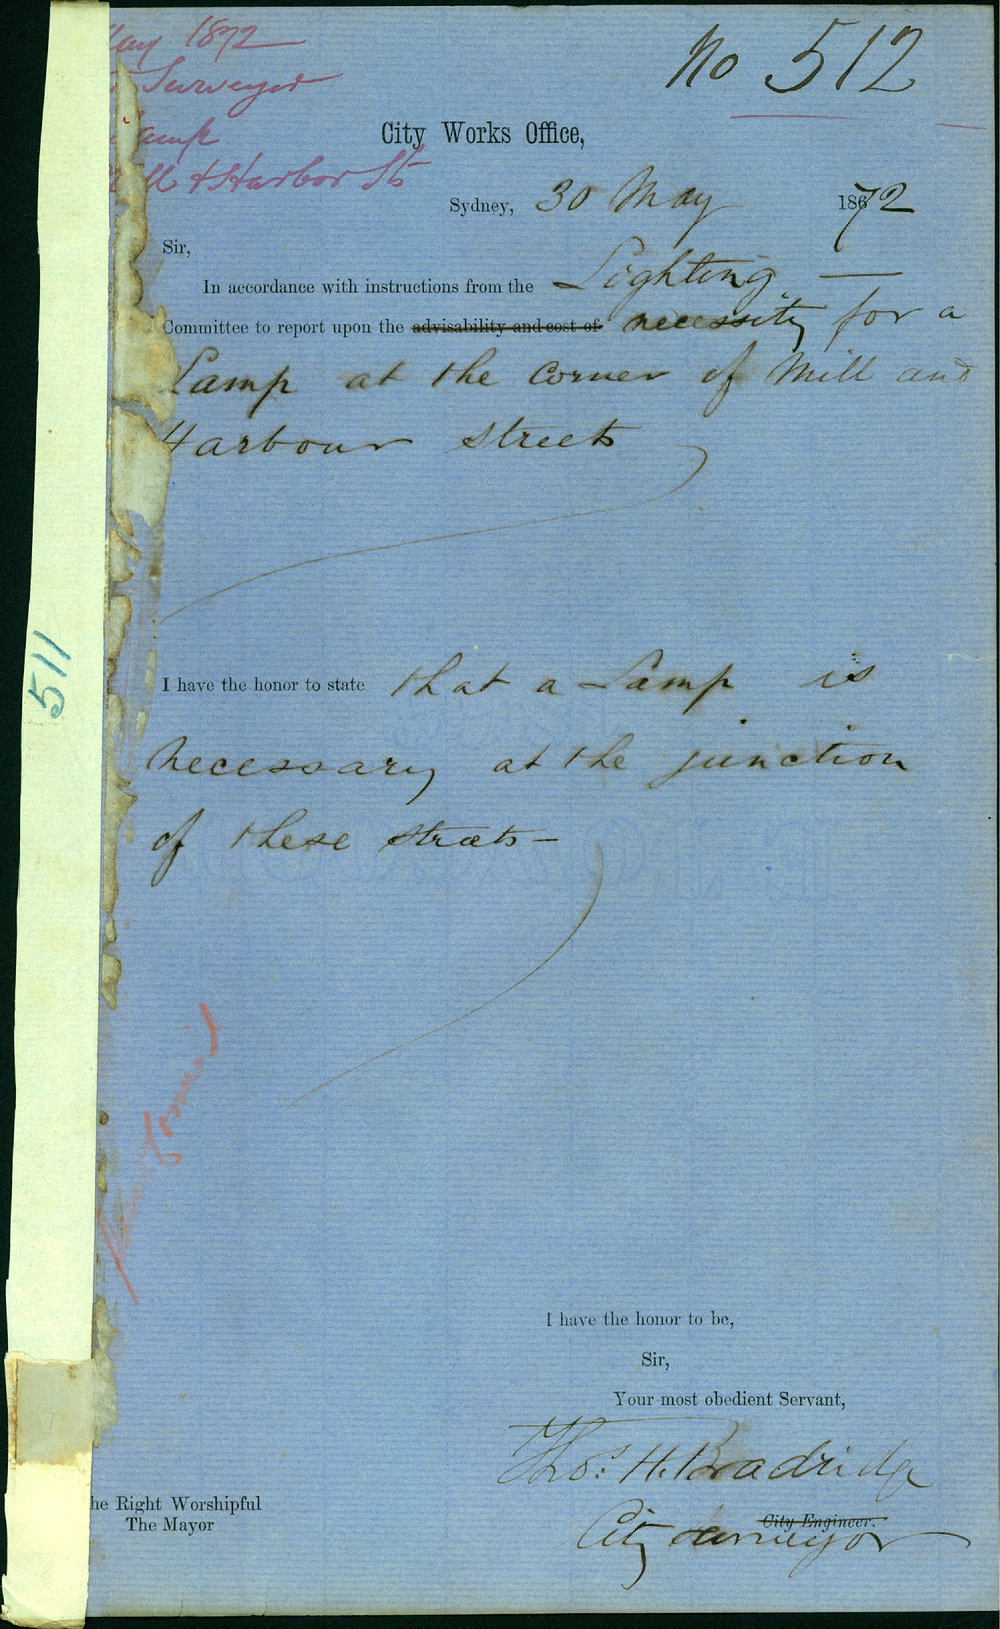 May 1872
Surveyor
Lamp
Mill & Harbor Sts
No 512
City Works Office,
Sydney, 30 May 1872
Sir,
In accordance with instructions from the Lighting —
Committee to report upon the advisability and cost of necessity for a
Lamp at the corner of Mill and
Harbour Streets
511
I have the honor to state that a Lamp is
necessary at the junction
of these streets —
I have the honor to be,
Sir,
Your most obedient Servant,
Thos. H. Bradridge
City Engineer.
City Surveyor
he Right Worshipful
The Mayor